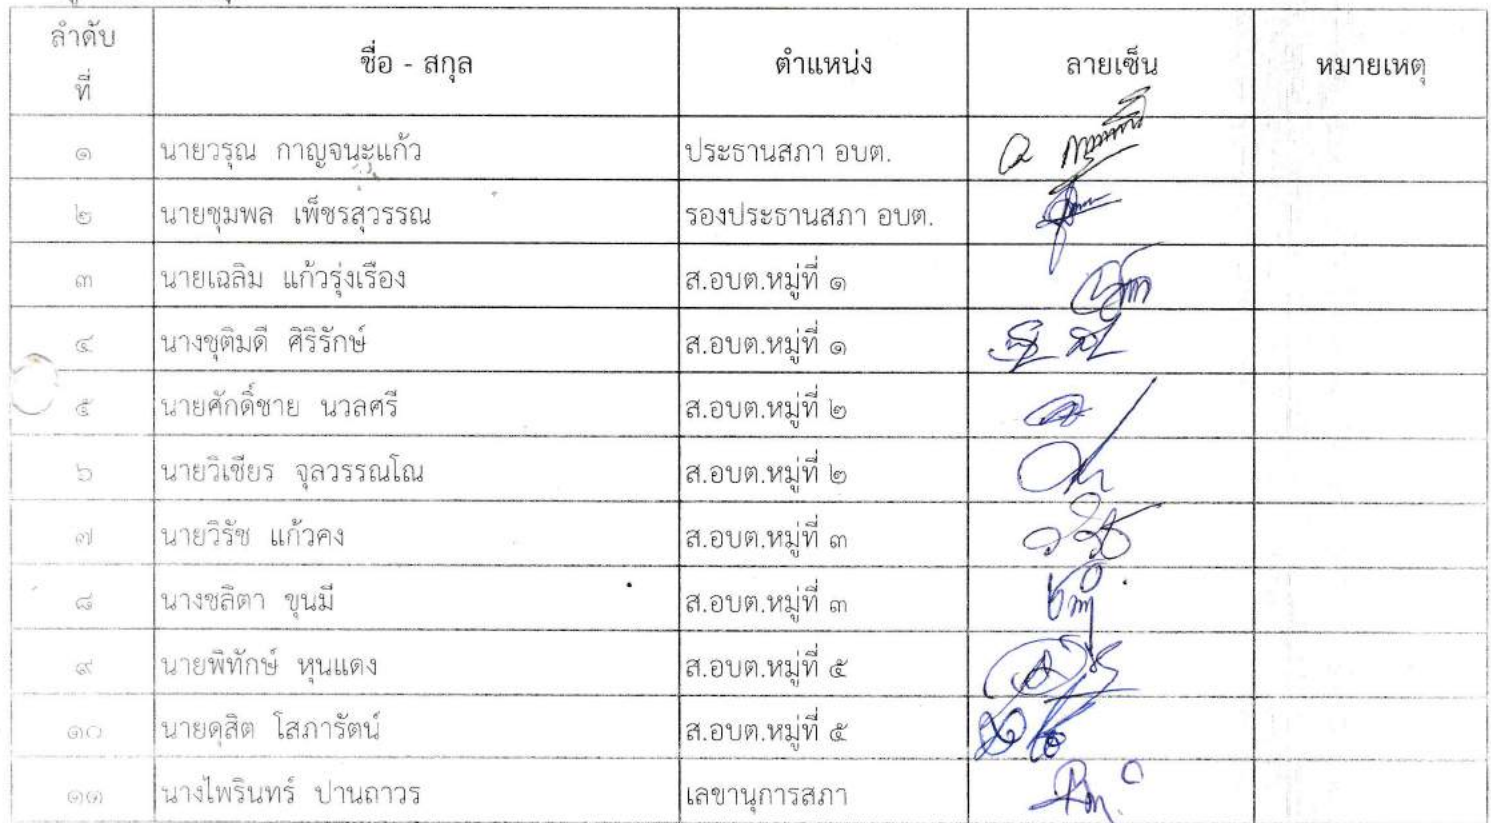 ลำดับที่ ชื่อ - สกุล ตำแหน่ง ลายเซ็น หมายเหตุ
๑ นายวรุณ กาญจนะแก้ว ประธานสภา อบต.
๒ นายชุมพล เพ็ชรสุวรรณ รองประธานสภา อบต.
๓ นายเฉลิม แก้วรุ่งเรือง ส.อบต.หมู่ที่ ๑
๔ นางชุติมดี ศิริรักษ์ ส.อบต.หมู่ที่ ๑
๕ นายศักดิ์ชาย นวลศรี ส.อบต.หมู่ที่ ๒
๖ นายวิเชียร จุลวรรณโณ ส.อบต.หมู่ที่ ๒
๗ นายวิรัช แก้วคง ส.อบต.หมู่ที่ ๓
๘ นางชลิตา ขุนมี ส.อบต.หมู่ที่ ๓
๙ นายพิทักษ์ หุนแดง ส.อบต.หมู่ที่ ๕
๑๐ นายดุสิต โสภารัตน์ ส.อบต.หมู่ที่ ๕
๑๑ นางไพรินทร์ ปานถาวร เลขานุการสภา